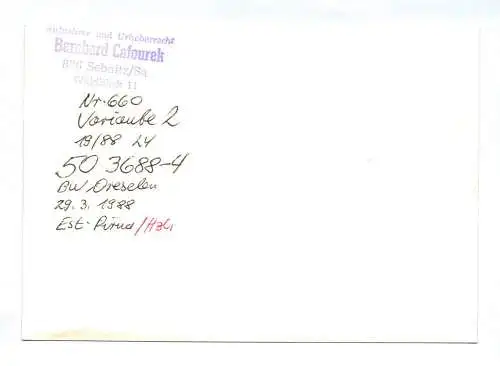 Aufnahme und Urheberrecht
Bernhard Cafourek
836 Sebnitz/Sa.
11
Nr. 660
Variante 2
19/88 24
50 3688-4
BW Dresden
29.3.1988
Est. Pirna/Hzl.